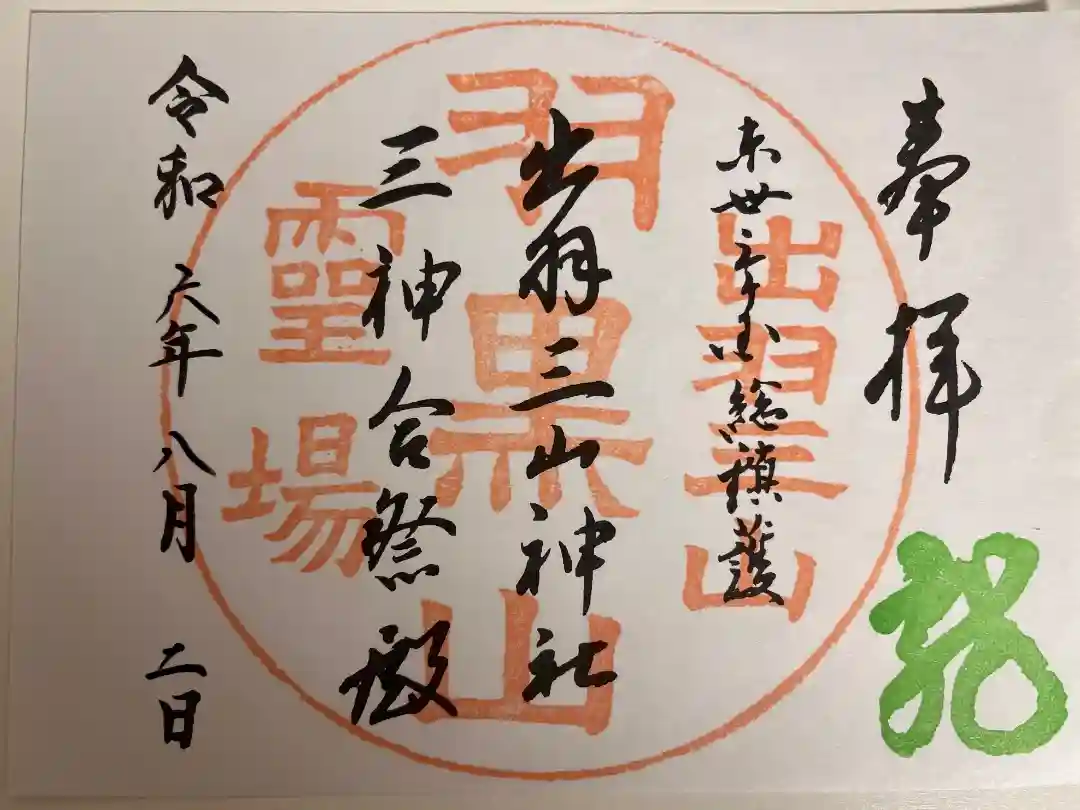 奉拝
東丗三ヶ国総鎮護
出羽三山神社
三神合祭殿
令和六年八月二日
出羽三山
羽黒山
霊場